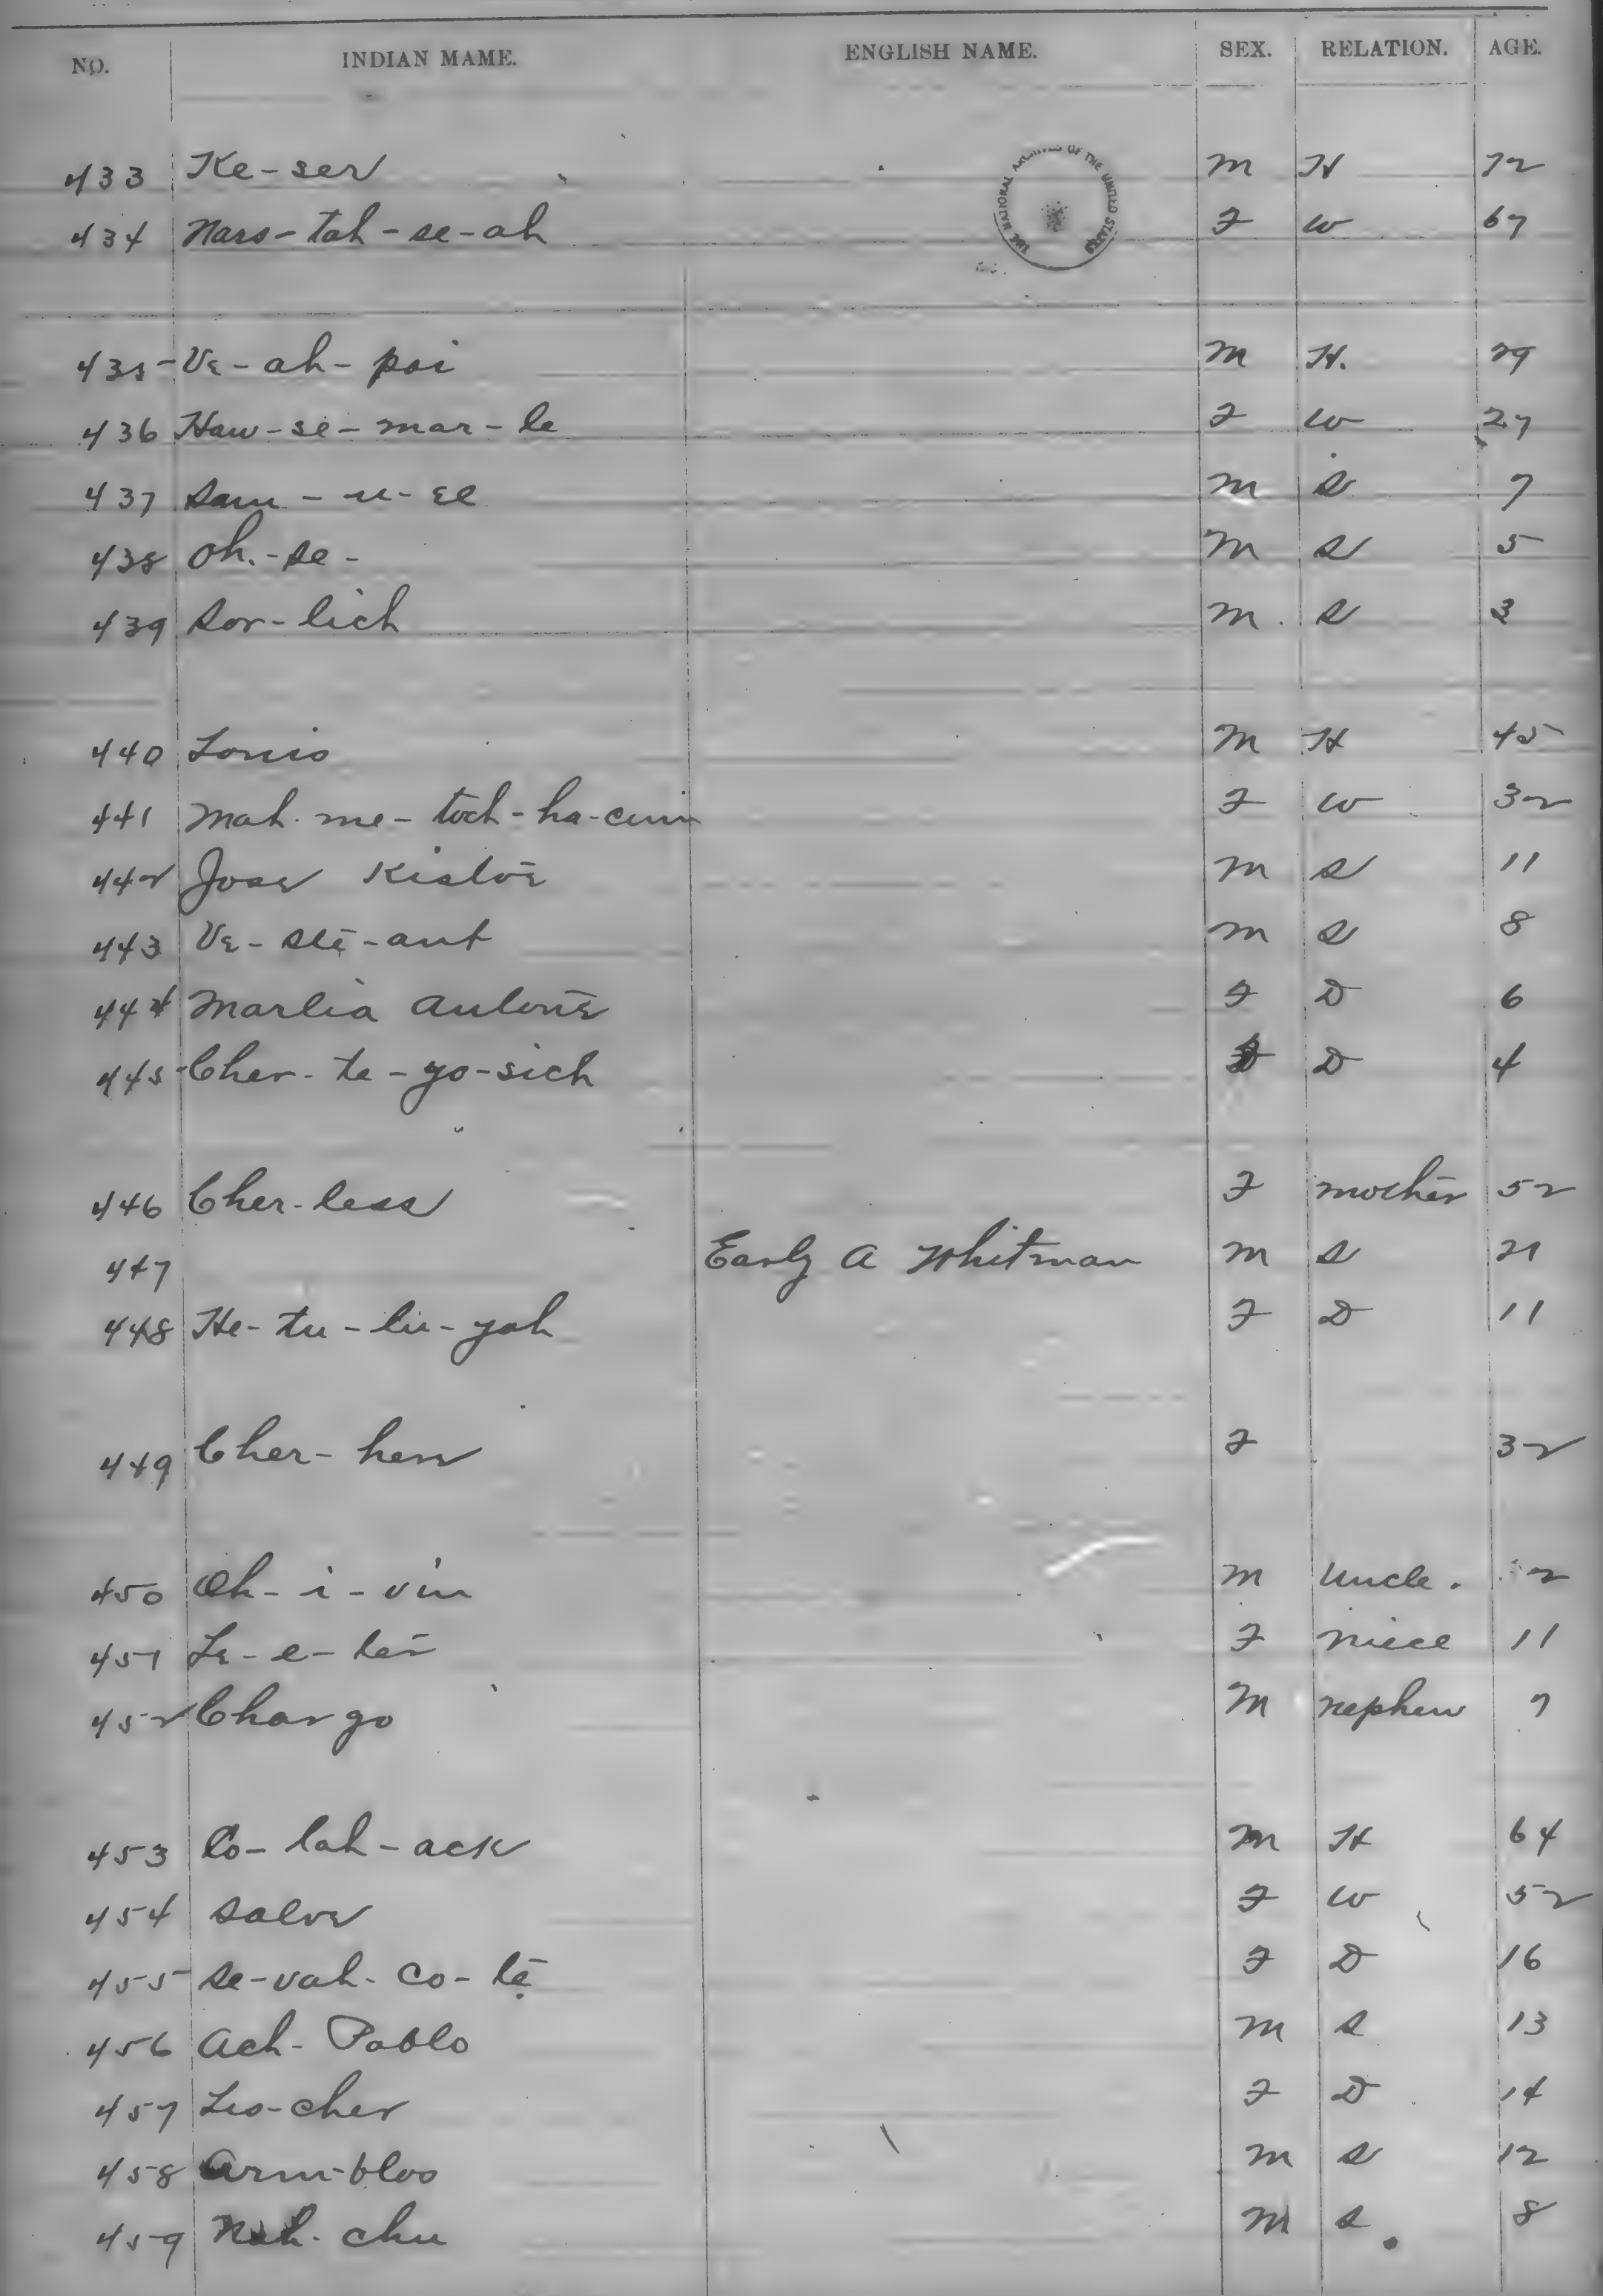 NO. INDIAN MAME. ENGLISH NAME. SEX. RELATION. AGE.
THE NATIONAL ARCHIVES OF THE UNITED STATES
433 Ke-ser M H 72
434 Nars-tah-se-ah F W 67
435 Ve-ah-poi M H. 29
436 Haw-se-mar-le F W 27
437 Sam-u-el M S 7
438 Oh.-se- M S 5
439 Sor-lich M. S 3
440 Louis M H 45
441 Mah-me-toch-ha-cum F W 32
442 Jose Kisloe M S 11
443 Ve-ste-ant M S 8
444 Marlia Antone F D 6
445 Cher-te-yo-sich F D 4
446 Cher-less F Mother 52
447 Early A Whitman M S 21
448 He-tu-lu-yah F D 11
449 Cher-hen F 32
450 Oh-i-vin M Uncle.
451 Le-e-ter F Niece 11
452 Chargo M Nephew 7
453 Co-lah-ack M H 64
454 Salve F W 52
455 Se-vah-co-le F D 16
456 Ach-Pablo M S 13
457 Lio-cher F D 14
458 Arm-blos M S 12
459 chu M S 8